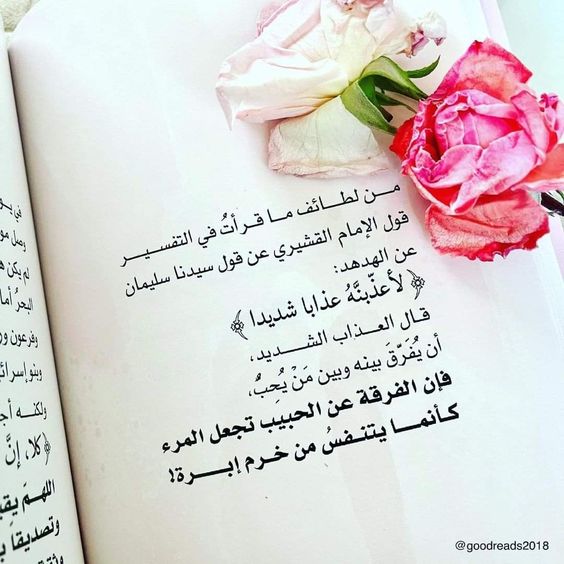 من لطائف ما قرأتُ في التفسير
قول الإمام القشيري عن قول سيدنا سليمان
عن الهدهد:
﴿لأعذّبنَّهُ عذابا شديدا﴾
قال العذاب الشديد،
أن يُفَرّقَ بينه وبين مَنْ يُحِبُّ،
فإن الفرقة عن الحبيب تجعل المرء
كأنما يتنفسُ من خرم إبرة!
في يو
وصل مو
لم يكن ه
البحرُ أما
وفرعون ور
وبنو إسرائ
ولكنه أج
﴿كلا، إنَّ
اللهمّ يقي
وتصديقا ب
@goodreads2018